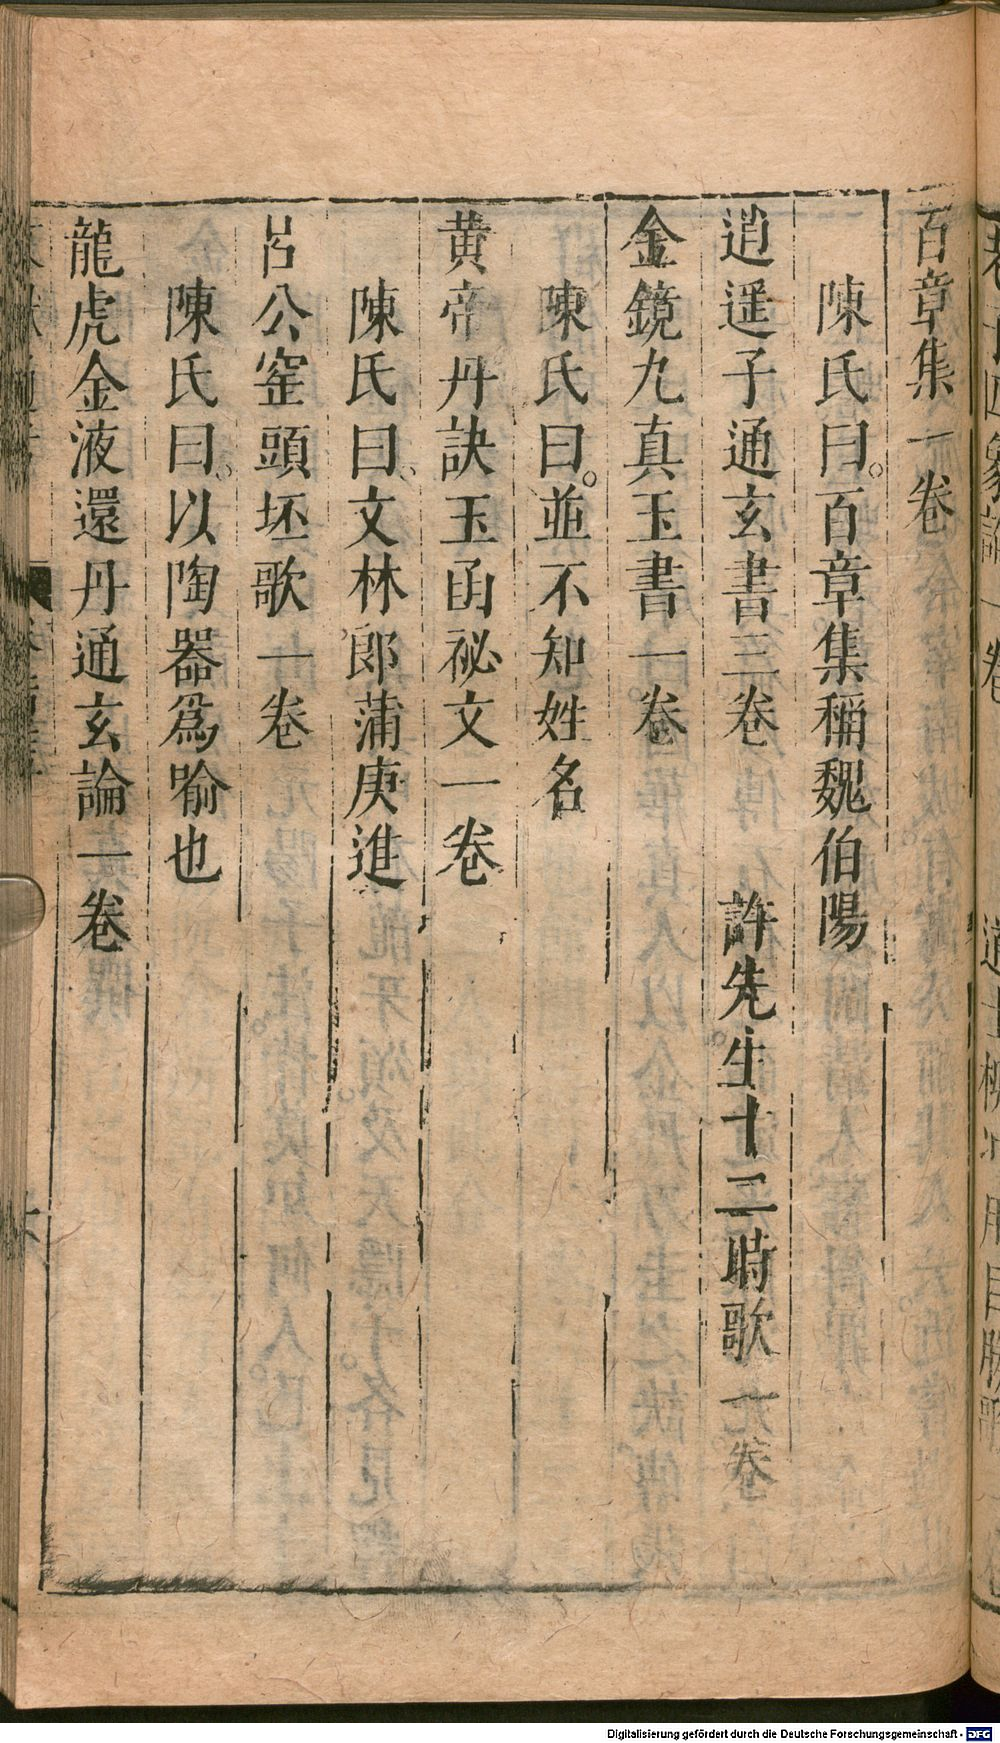 百章集一卷
陳氏曰。百章集稱魏伯陽
逍遥子通玄書三卷　許先生十二時歌一卷
金鏡九真玉書一卷
陳氏曰。並不知姓名
黄帝丹訣玉函祕文一卷
陳氏曰。文林郎蒲庚進
吕公窑頭坯歌一卷
陳氏曰。以陶器爲喻也
龍虎金液還丹通玄論一卷
Digitalisierung gefördert durch die Deutsche Forschungsgemeinschaft - DFG